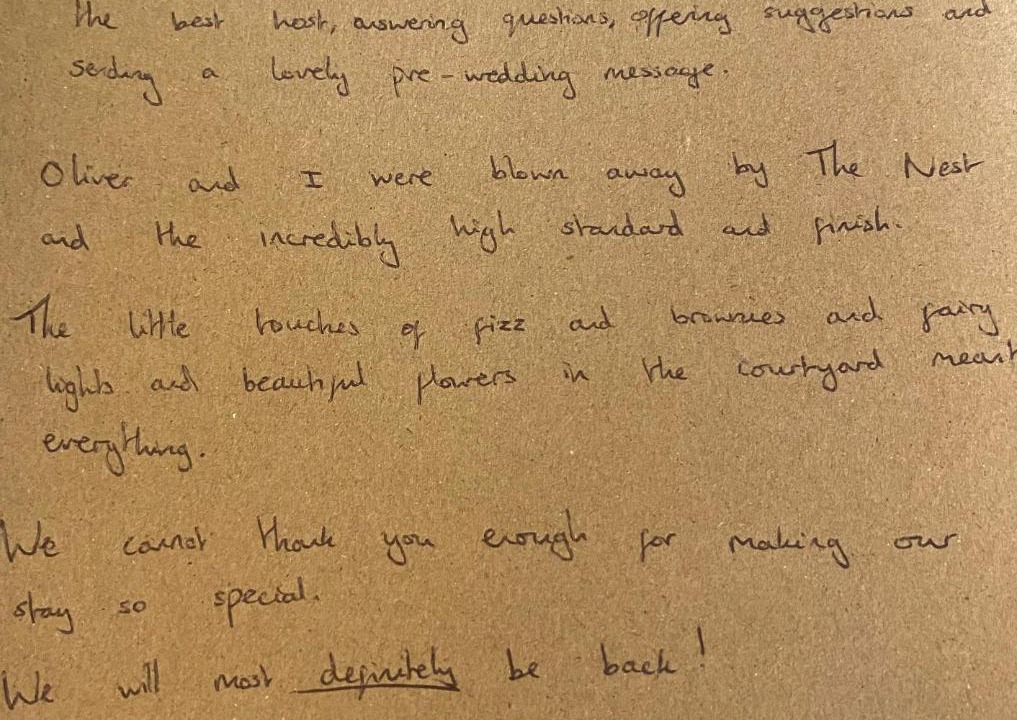 the best host, answering questions, offering suggestions and
sending a lovely pre-wedding message.
Oliver and I were blown away by The Nest
and the incredibly high standard and finish.
The little touches of fizz and brownies and fairy
lights and beautiful flowers in the courtyard meant
everything.
We cannot thank you enough for making our
stay so special.
We will most definitely be back!